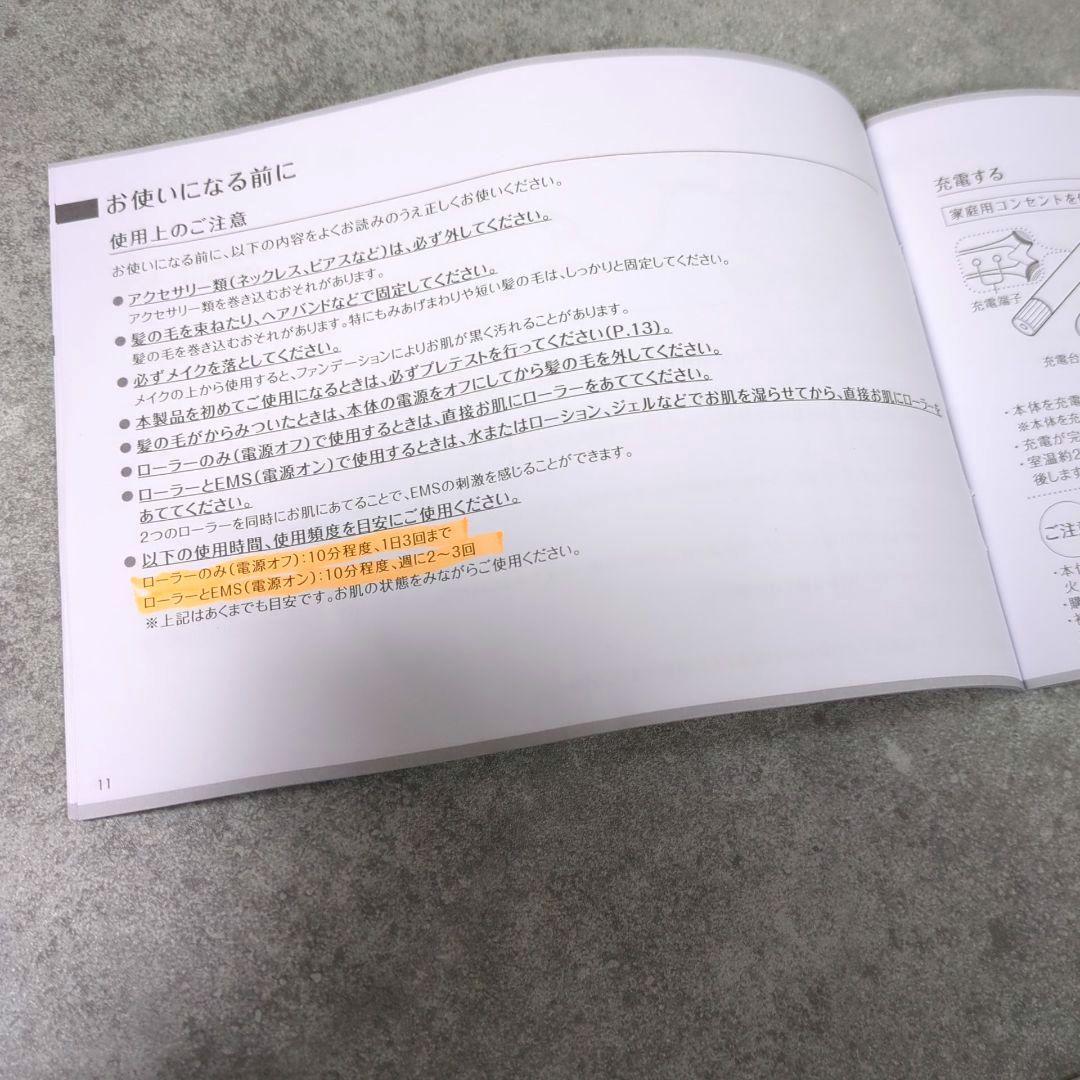 お使いになる前に
使用上のご注意
お使いになる前に、以下の内容をよくお読みのうえ正しくお使いください。
●アクセサリー類(ネックレス、ピアスなど)は、必ず外してください。
アクセサリー類を巻き込むおそれがあります。
●髪の毛を束ねたり、ヘアバンドなどで固定してください。
髪の毛を巻き込むおそれがあります。特にもみあげまわりや短い髪の毛は、しっかりと固定してください。
●必ずメイクを落としてください。
メイクの上から使用すると、ファンデーションによりお肌が黒く汚れることがあります。
●本製品を初めてご使用になるときは、必ずプレテストを行ってください(P.13)。
●髪の毛がからみついたときは、本体の電源をオフにしてから髪の毛を外してください。
●ローラーのみ(電源オフ)で使用するときは、直接お肌にローラーをあててください。
●ローラーとEMS(電源オン)で使用するときは、水またはローション、ジェルなどでお肌を湿らせてから、直接お肌にローラーを
あててください。
2つのローラーを同時にお肌にあてることで、EMSの刺激を感じることができます。
●以下の使用時間、使用頻度を目安にご使用ください。
ローラーのみ(電源オフ):10分程度、1日3回まで
ローラーとEMS(電源オン):10分程度、週に2〜3回
※上記はあくまでも目安です。お肌の状態をみながらご使用ください。
11
充電する
家庭用コンセントを
充電端子
充電台
・本体を充電
※本体を充
・充電が完
・室温約2
後します
ご注
・本体
火
・購